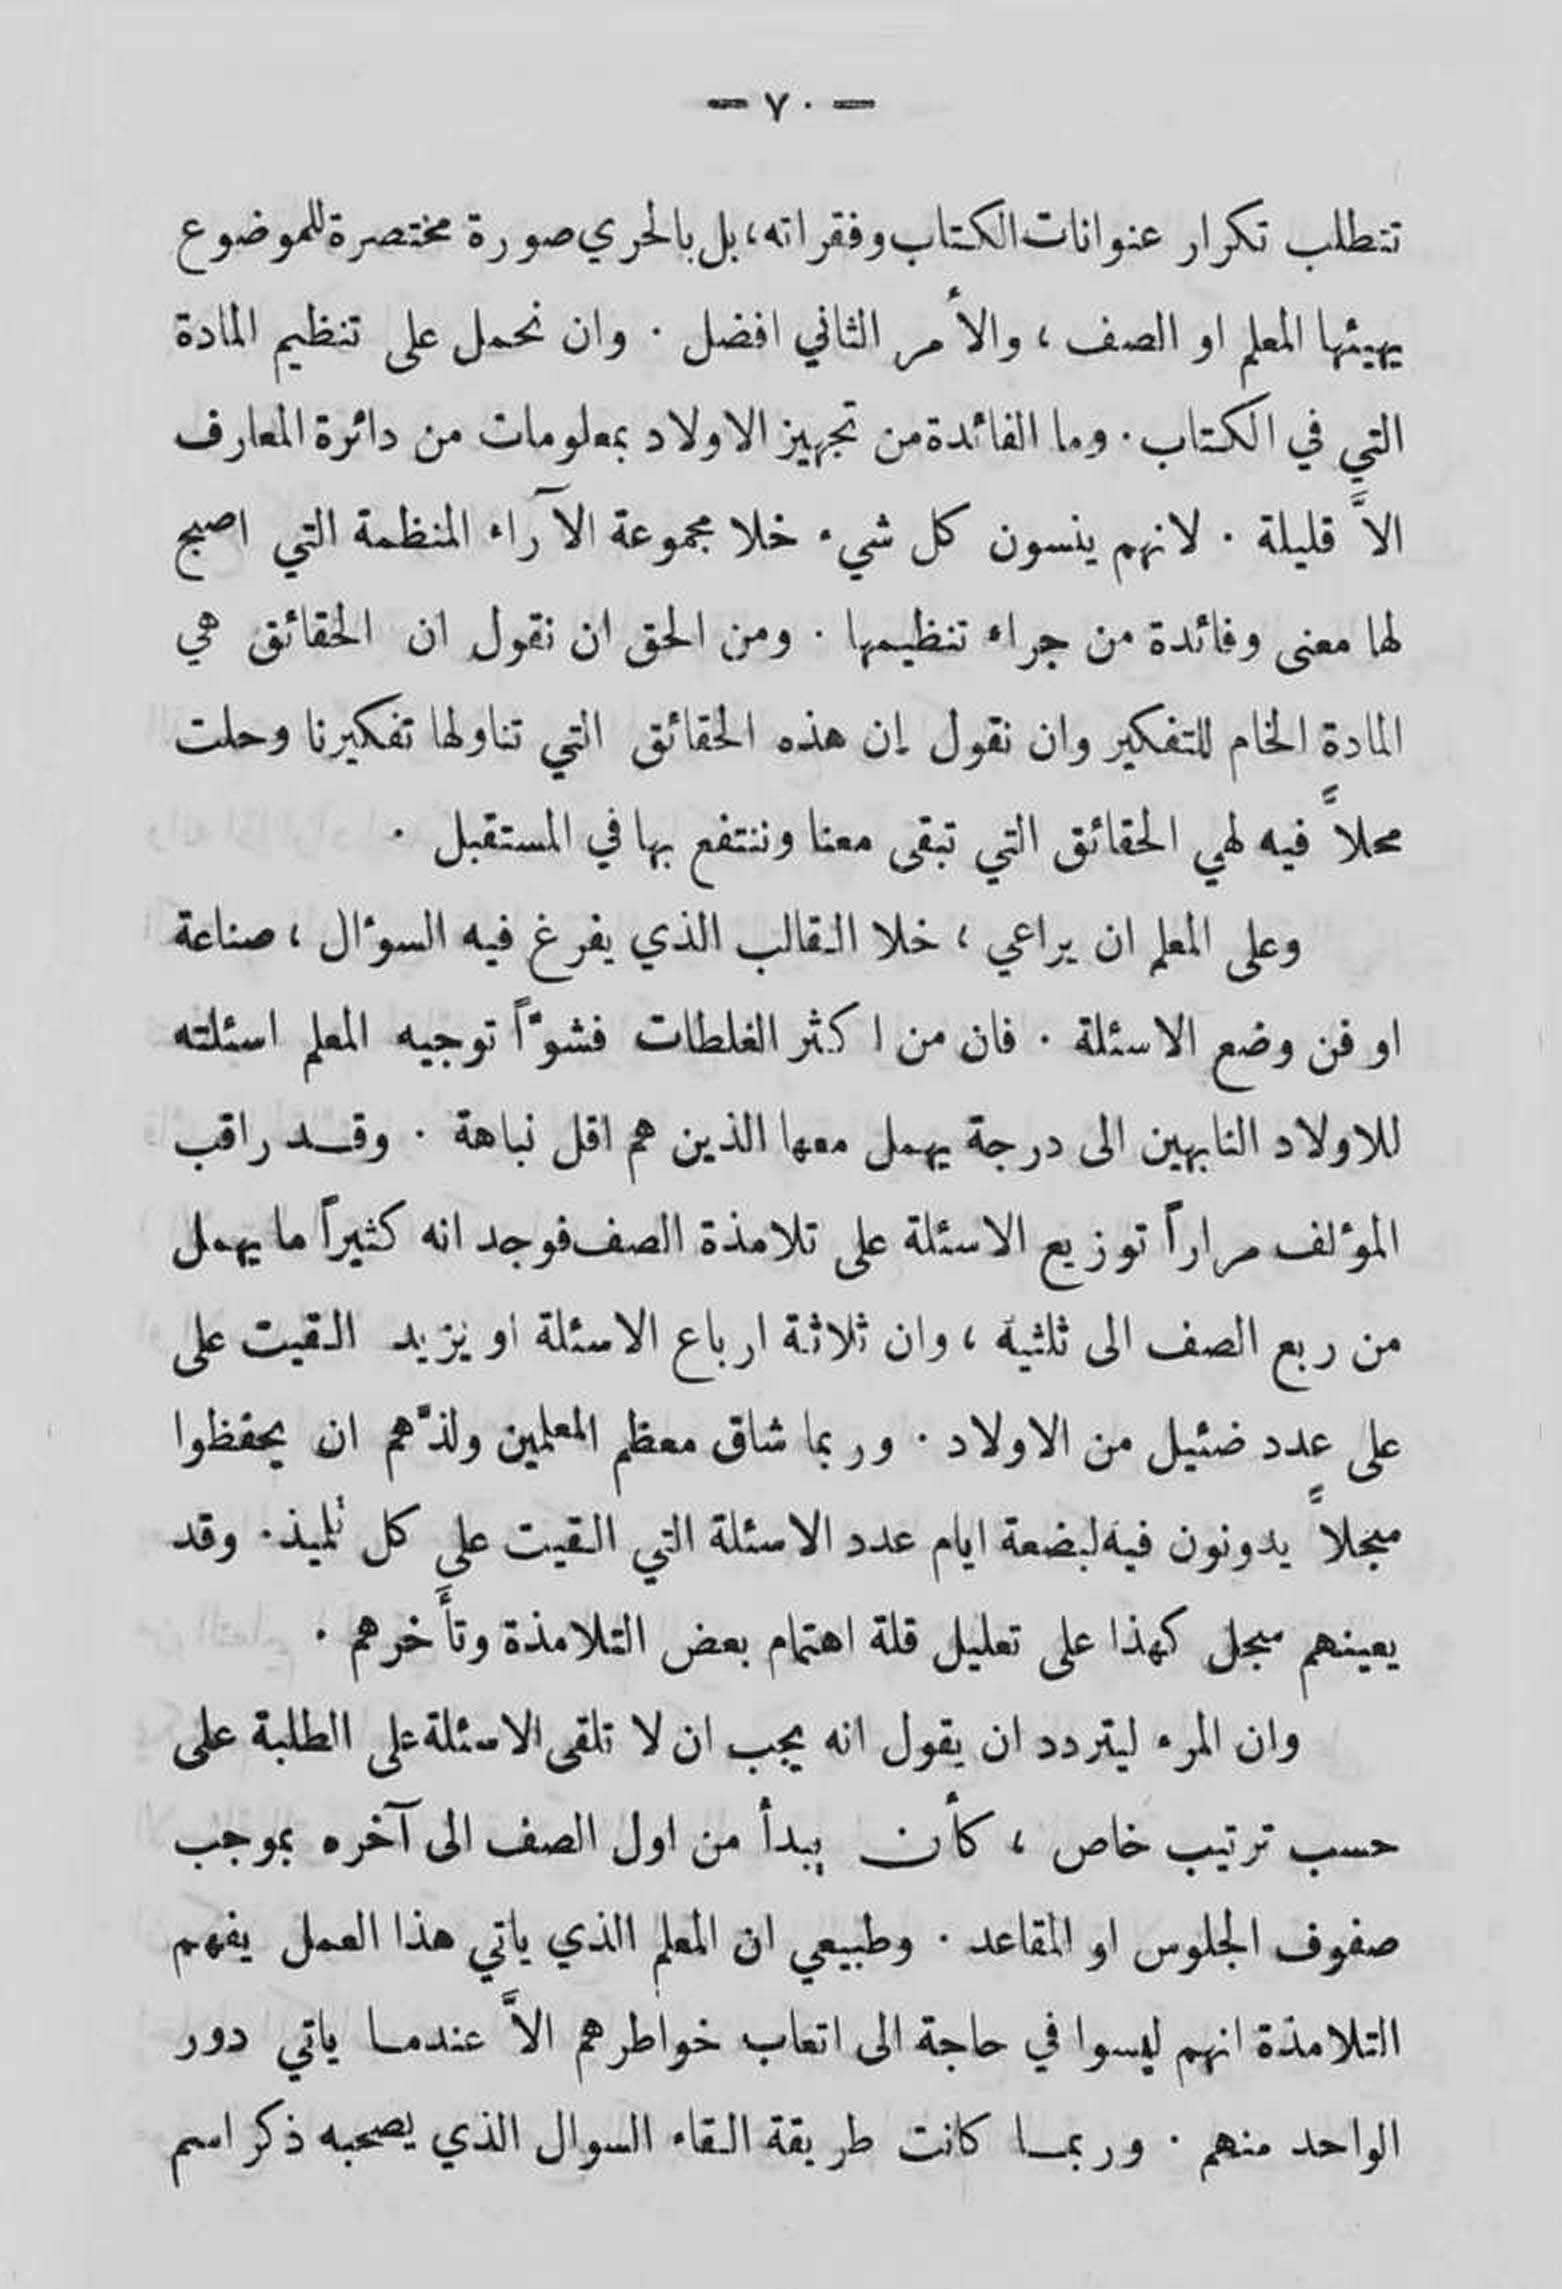 — ٧٠ —
تتطلب تكرار عنوانات الكتاب وفقراته، بل بالحري صورة مختصرة للموضوع
يهيئها المعلم او الصف ، والأمر الثاني افضل . وان نحمل على تنظيم المادة
التي في الكتاب . وما الفائدة من تجهيز الاولاد بمعلومات من دائرة المعارف
الاَّ قليلة . لانهم ينسون كل شيء خلا مجموعة الآراء المنظمة التي اصبح
لها معنى وفائدة من جراء تنظيمها . ومن الحق ان نقول ان الحقائق هي
المادة الخام للتفكير وان نقول إن هذه الحقائق التي تناولها تفكيرنا وحلت
محلاً فيه لهي الحقائق التي تبقى معنا وننتفع بها في المستقبل .
وعلى المعلم ان يراعي ، خلا القالب الذي يفرغ فيه السؤال ، صناعة
او فن وضع الاسئلة . فان من اكثر الغلطات فشوّاً توجيه المعلم اسئلته
للاولاد النابهين الى درجة يهمل معها الذين هم اقل نباهة . وقد راقب
المؤلف مراراً توزيع الاسئلة على تلامذة الصف فوجد انه كثيراً ما يهمل
من ربع الصف الى ثلثيه ، وان ثلاثة ارباع الاسئلة او يزيد القيت على
على عدد ضئيل من الاولاد . وربما شاق معظم المعلمين ولذَّهم ان يحفظوا
سجلاً يدونون فيه لبضعة ايام عدد الاسئلة التي القيت على كل تلميذ . وقد
يعينهم سجل كهذا على تعليل قلة اهتمام بعض التلامذة وتأَخرهم .
وان المرء ليتردد ان يقول انه يجب ان لا تلقى الاسئلة على الطلبة على
حسب ترتيب خاص ، كأن يبدأ من اول الصف الى آخره بموجب
صفوف الجلوس او المقاعد . وطبيعي ان المعلم الذي ياتي هذا العمل يفهم
التلامذة انهم ليسوا في حاجة الى اتعاب خواطرهم الاَّ عندما ياتي دور
الواحد منهم . وربما كانت طريقة القاء السوال الذي يصحبه ذكر اسم